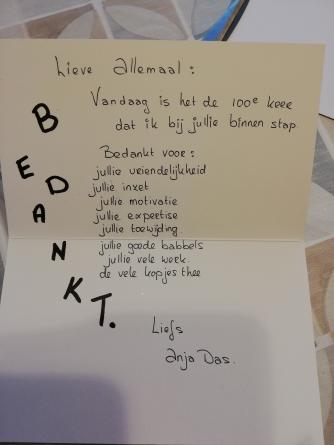 Lieve allemaal :
Vandaag is het de 100e keer
dat ik bij jullie binnen stap.
Bedankt voor :
jullie vriendelijkheid
jullie inzet
jullie motivatie
jullie expertise
jullie toewijding.
jullie goede babbels
jullie vele werk.
de vele kopjes thee
BEDANKT.
Liefs
Anja Das.